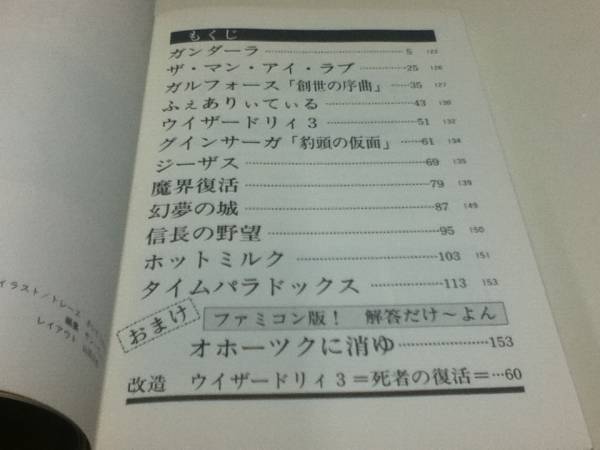 もくじ
ガンダーラ……5 122
ザ・マン・アイ・ラブ……25 126
ガルフォース「創世の序曲」……35 127
ふぇありぃてぃる……43 130
ウイザードリィ3……51 132
グインサーガ「豹頭の仮面」……61 134
ジーザス……69 135
魔界復活……79 139
幻夢の城……87 149
信長の野望……95 150
ホットミルク……103 151
タイムパラドックス……113 153
おまけ
ファミコン版! 解答だけ〜よん
オホーツクに消ゆ……153
改造 ウイザードリィ3=死者の復活=…60
イラスト/トレース
編集
レイアウト